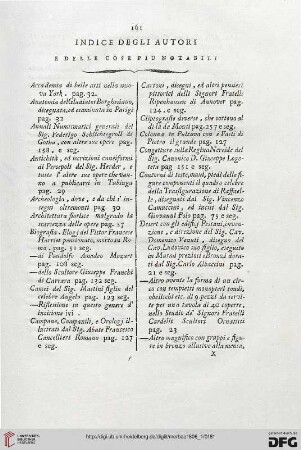 161
INDICE DEGLI AUTORI
E DELLE COSE PIU NOTABILI
Accademia di belle arti nella nuova York. pag. 32.
Anatomia del Gladiator Borghesiano, disegnata, ed esaminata in Parigi pag. 32
Annali Numismatici generali del Sig. Federigo Schlichtegroll di Gotha, con altre sue opere pag. 158. e seg.
Antichità, ed iscrizioni cuneiformi di Persepoli del Sig. Herder, e tutte l' altre sue opere che vanno a publicarsi in Tubinga pag. 29
Archeologia, dove, e da chi s' insegni oltremonti pag. 30
Architettura
delle opere pag. 57
Biografia. Elogj del Pittor Francese Harriet pensionato, morto a Roma. pag. 51 e seg.
— di Pandolfo Amadeo Mozart pag. 108 seg.
— dello Scultore Giuseppe Franchi di Carrara pag. 122 seg.
Camei del Sig. Mastini figlio del celebre Angelo pag. 123 seg.
— Riflessione in questo genere d' incisione ivi.
Campane, Campanili, e Orologj illustrati dal Sig. Abate Francesco Cancellieri Romano pag. 127 e seg.
Cartoni, disegni, ed altri pensieri pittorici delli Signori Fratelli Ripenhausen di Annover pag. 124. e seg.
Clipeografie diverse, che vettono al di là de Monti pag. 257 e seg.
Colonna in Pultawa con i Fasti di Pietro il grande pag. 127
Congetture sulla Regina Nereide del Sig. Canonico D. Giuseppe Logoteta pag. 151 e seg.
Contorni di teste, mani, piedi delle figure componenti il quadro celebre della Trasfigurazione di Raffaele, disegnati dal Sig. Vincenzo Camuccini, ed incisi dal Sig. Giovanni Folo pag. 75 e seg.
Deser con gli edifizj Pestani, invenzione, e direzione del Sig. Cav. Domenico Venuti, disegno del Cav. Ludovico suo figlio, eseguito in Marmi preziosi e Bronzi dorati dal Sig. Carlo Albacini pag. 21 e seg.
— Altro avente la forma di un circo con tempietti monopteri tondi, obelischi etc. di 9 pezzi da servire per una tavola di 40 coperte, nello Studio de' Signori Fratelli Cardelli Scultori Ornatisti pag. 23
— Altro magnifico con gruppi e figure in bronzo allusive alla menta,
X
http://digi.ub.uni-heidelberg.de/diglit/morbaa1806_1/0181